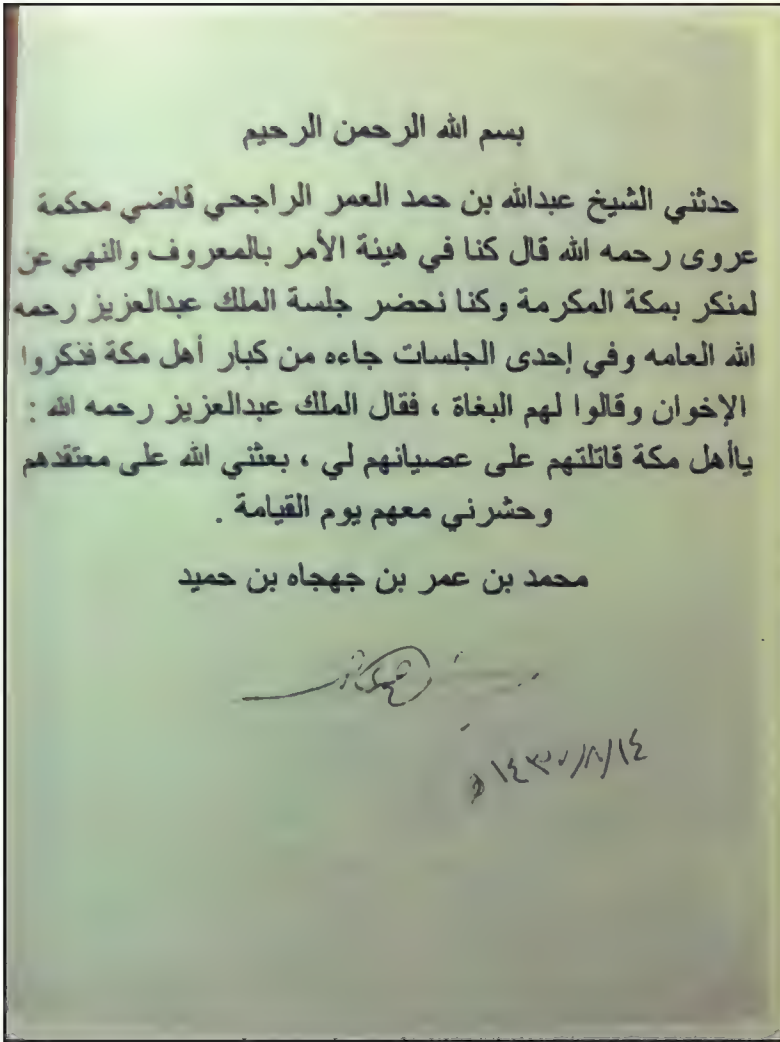 بسم الله الرحمن الرحيم
حدثني الشيخ عبدالله بن حمد العمر الراجحي قاضي محكمة
عروى رحمه الله قال كنا في هيئة الأمر بالمعروف والنهي عن
لمنكر بمكة المكرمة وكنا نحضر جلسة الملك عبدالعزيز رحمه
الله العامه وفي إحدى الجلسات جاءه من كبار أهل مكة فذكروا
الإخوان وقالوا لهم البغاة ، فقال الملك عبدالعزيز رحمه الله :
ياأهل مكة قاتلتهم على عصيانهم لي ، بعثني الله على معتقدهم
وحشرني معهم يوم القيامة .
محمد بن عمر بن جهجاه بن حميد